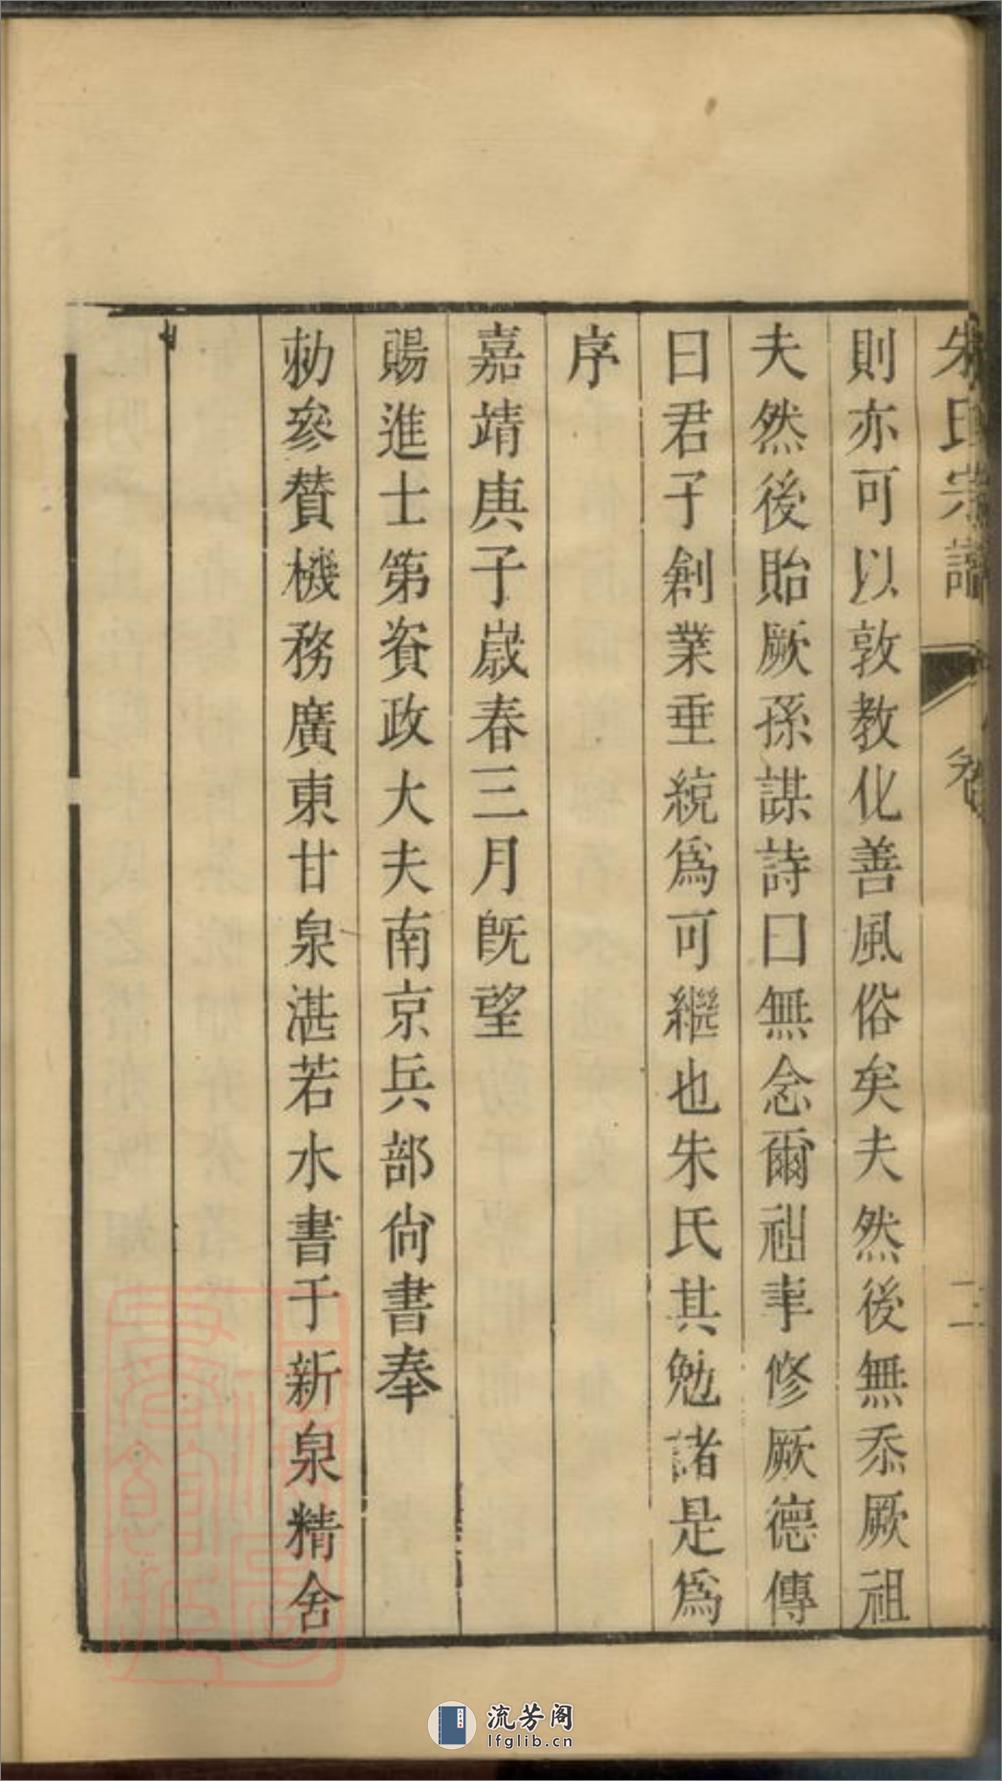 朱氏宗譜
卷
二
則亦可以敦教化善風俗矣夫然後無忝厥祖
夫然後貽厥孫謀詩曰無念爾祖聿修厥德傳
曰君子創業垂統爲可繼也朱氏其勉諸是爲
序
嘉靖庚子歲春三月旣望
賜進士第資政大夫南京兵部尙書奉
勅參贊機務廣東甘泉湛若水書于新泉精舍
流芳阁
lfglib.cn